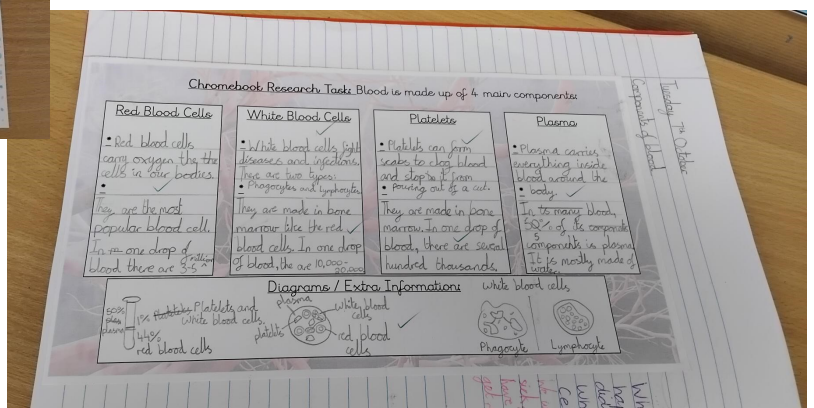 Chromebook Research Task: Blood is made up of 4 main components:
Red Blood Cells
• Red blood cells
carry oxygen the the
cells in our bodies.
•
They are the most
popular blood cell.
In one drop of
blood there are 3-5 million
White Blood Cells
• White blood cells fight
diseases and infections.
There are two types:
• Phagocytes and lymphocytes
They are made in bone
marrow like the red
blood cells. In one drop
of blood, the are 10,000-
20,000
Platelets
• Platelets can form
scabs to clog blood
and stop it from
• pouring out of a cut.
They are made in bone
marrow. In one drop of
blood, there are several
hundred thousands.
Plasma
• Plasma carries
everything inside
blood around the
• body.
In its many blood,
50% of its
components is plasma
It is mostly made of
water.
Tuesday 7th October
Components of blood
Diagrams / Extra Information:
50%
plasma
1% Platelets Platelets and
white blood cells.
44%
red blood cells
plasma
platelets
white blood
cells
red blood
cells
White blood cells
Phagocyte
Lymphocyte